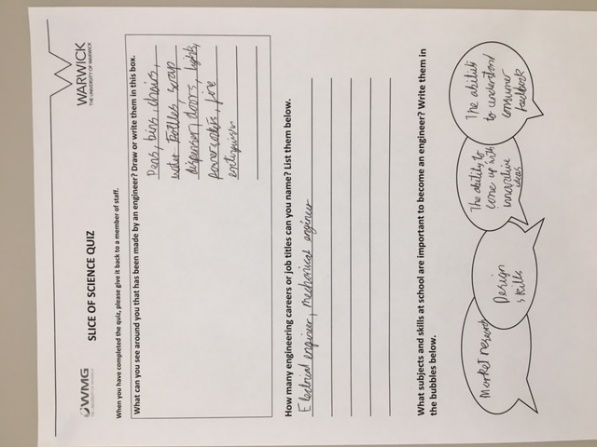 WMG
THE UNIVERSITY OF WARWICK
WARWICK
THE UNIVERSITY OF WARWICK
SLICE OF SCIENCE QUIZ
When you have completed the quiz, please give it back to a member of staff.
What can you see around you that has been made by an engineer? Draw or write them in this box.
Pens, bins, chairs,
water bottles, soap
dispenser, doors, lights,
fire
How many engineering careers or job titles can you name? List them below.
Electrical engineer, mechanical engineer
What subjects and skills at school are important to become an engineer? Write them in
the bubbles below.
Market research
Design
skills
The ability to
come up with
innovative
ideas
The ability
to understand
consumer
feedback